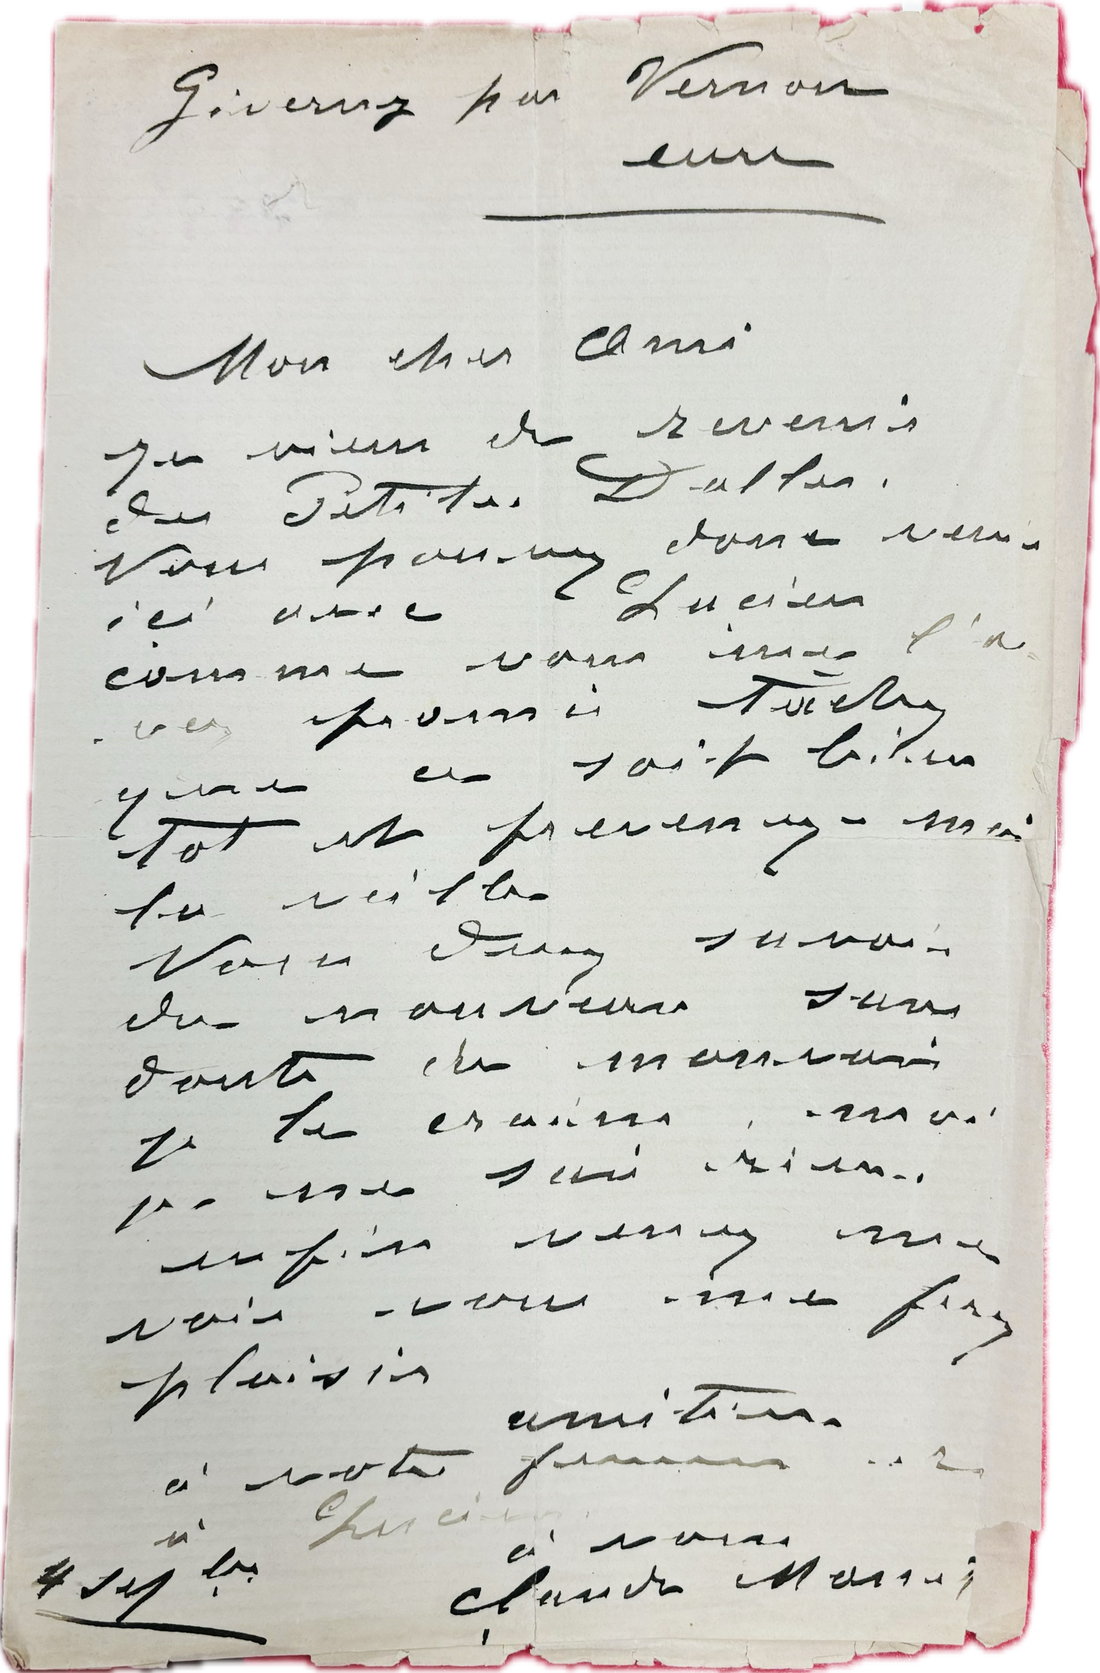 Giverny par Vernon
eure
Mon cher Ami
Je viens de revenir
des Petites Dalles.
Vous pouvez donc venir
ici avec Lucien
comme vous me l'a-
vez promis tachez
que ce soit bien
tot et prevenez-moi
la veille
Vous devez savoir
du nouveau sans
doute du mauvais
je le crains, moi
je ne sais rien.
enfin venez me
voir vous me ferez
plaisir
amitiés
à votre femme
à Lucien
à vous
4 sepbre Claude Monet